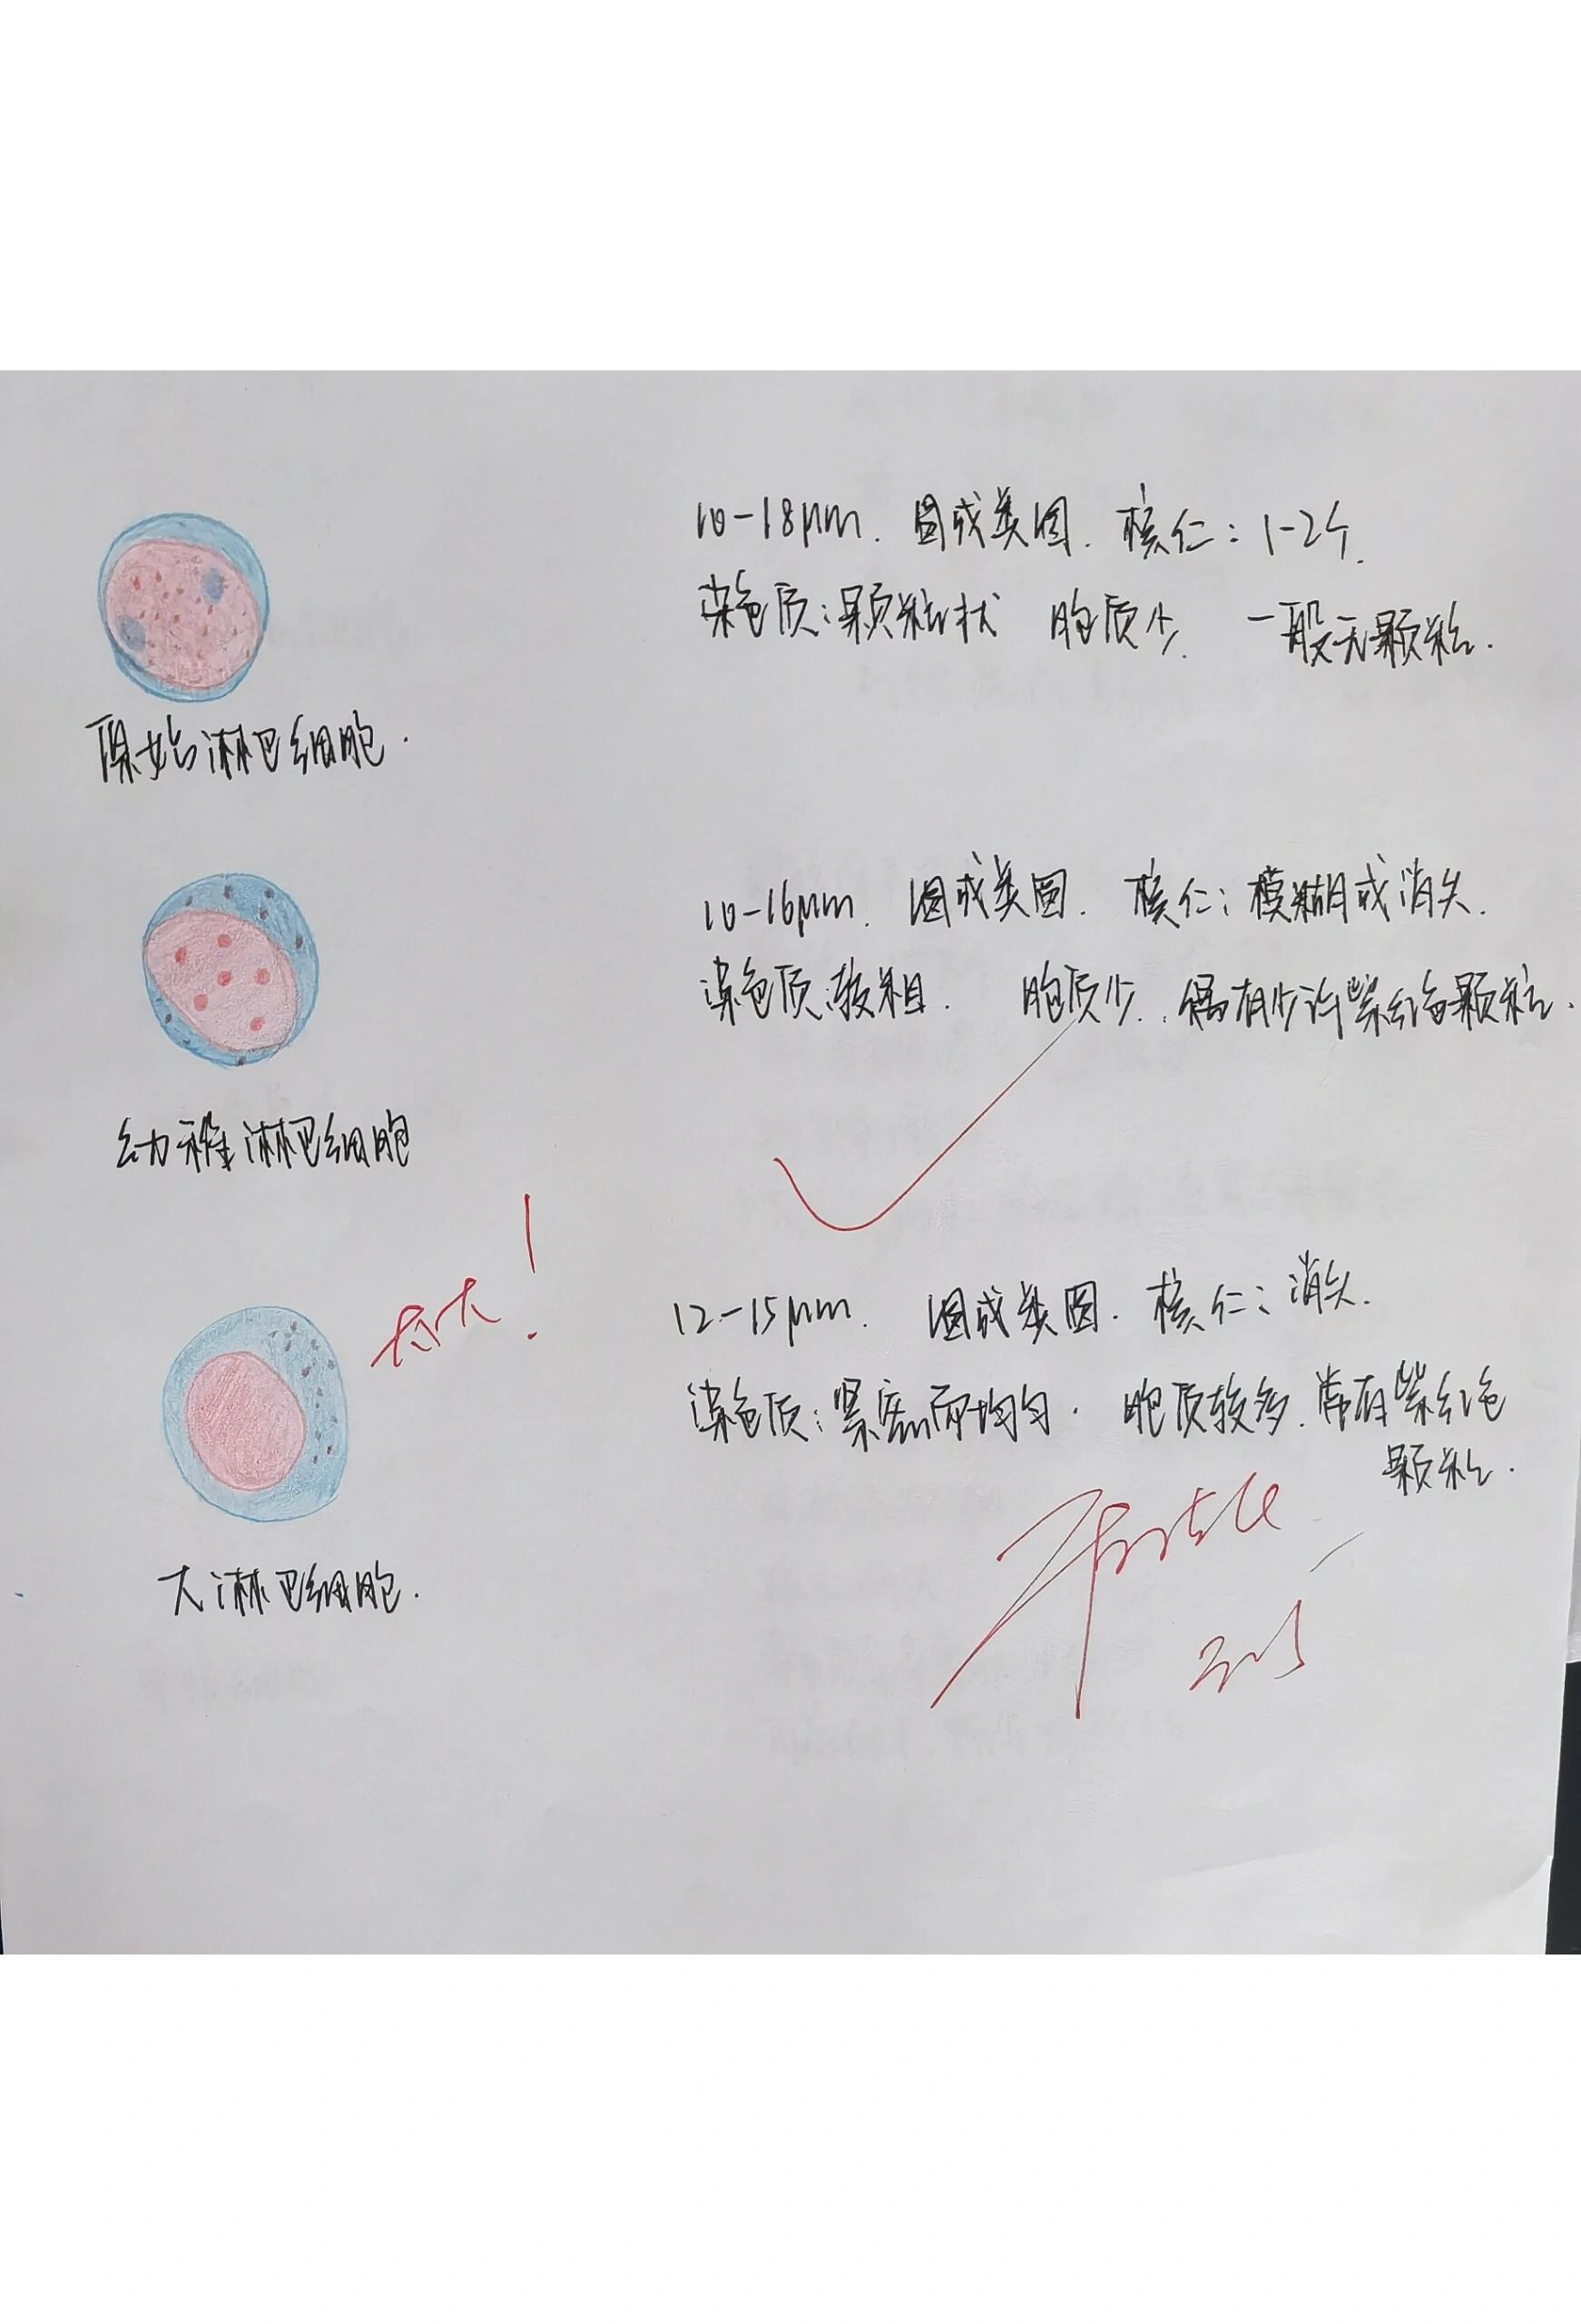 10-18μm. 圆或类圆. 核仁：1-2个.
染色质：颗粒状 胞质少. 一般无颗粒.
原始淋巴细胞.
10-16μm. 圆或类圆. 核仁：模糊或消失.
染色质：较粗. 胞质少. 偶有少许紫红色颗粒.
幼稚淋巴细胞
太大！
12-15μm. 圆或类圆. 核仁：消失.
染色质：紧密而均匀. 胞质较多. 常有紫红色
颗粒.
大淋巴细胞.